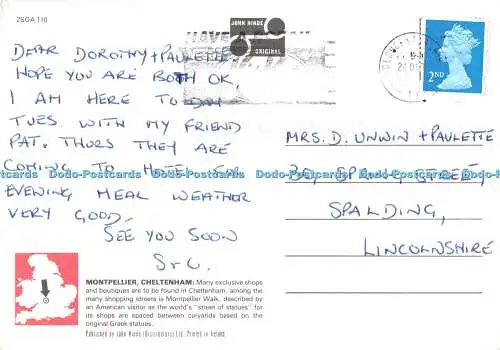 2SGA 110
JOHN HINDE
ORIGINAL
2ND
DEAR DOROTHY + PAULETTE
HOPE YOU ARE BOTH OK.
I AM HERE TO DAY
TUES. WITH MY FRIEND
PAT. THURS THEY ARE
COMING TO HOTEL FOR
EVENING MEAL WEATHER
VERY GOOD.
SEE YOU SOON
MRS. D. UNWIN + PAULETTE
SPRING STREET,
SPALDING,
LINCOLNSHIRE
Dodo-Postcards Dodo-Postcards Dodo-Postcards Dodo-Postcards
MONTPELLIER, CHELTENHAM: Many exclusive shops
and boutiques are to be found in Cheltenham, among the
many shopping streets is Montpellier Walk, described by
an American visitor as the world's "street of statues" for
its shops are spaced between caryatids based on the
original Greek statues.
Published by John Hinde (Distributors) Ltd. Printed in Ireland.